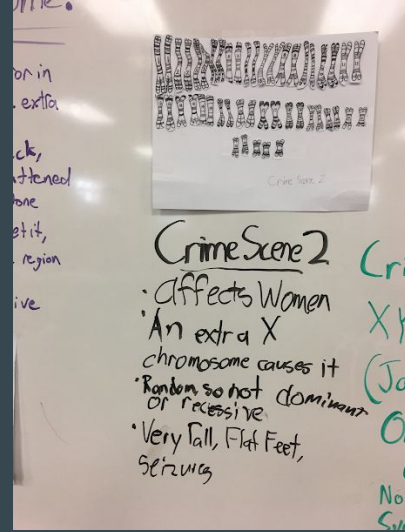 ome.
or in
extra
ck,
attened
one
et it,
region
ive
Crime Scene 2
Crime Scene 2
• affects Women
• An extra X
chromosome causes it
• Random so not dominant
or recessive
• Very Tall, Flat Feet,
Seizures
Cri
X
(Ja
O
No
Sy